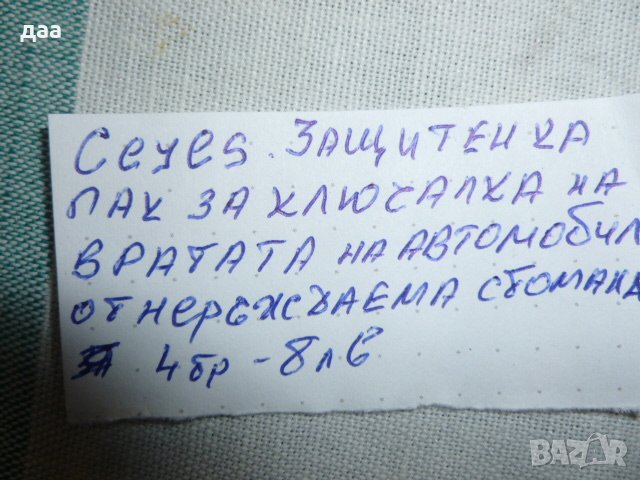 даа
Ceyes. ЗАЩИТЕН КА
ПАК ЗА КЛЮЧАЛКА НА
ВРАТАТА НА АВТОМОБИЛ
ОТ НЕРЪЖДАЕМА СТОМАНА
ЗА 4бр - 8лв
BAZAR